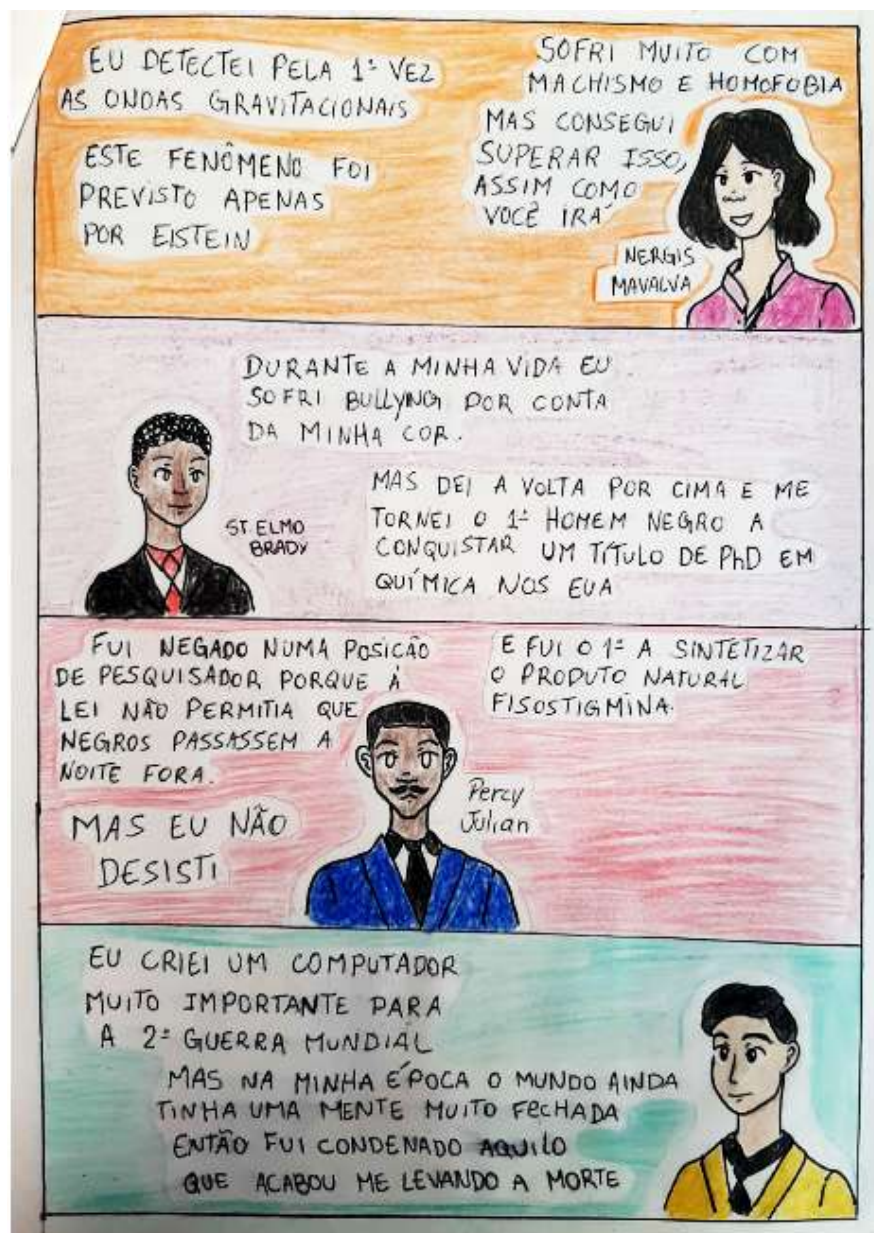 EU DETECTEI PELA 1ª VEZ
AS ONDAS GRAVITACIONAIS
ESTE FENÔMENO FOI
PREVISTO APENAS
POR EISTEIN
SOFRI MUITO COM
MACHISMO E HOMOFOBIA
MAS CONSEGUI
SUPERAR ISSO,
ASSIM COMO
VOCÊ IRÁ
NERGIS
MAVALVA
DURANTE A MINHA VIDA EU
SOFRI BULLYNG POR CONTA
DA MINHA COR.
MAS DEI A VOLTA POR CIMA E ME
TORNEI O 1º HOMEM NEGRO A
CONQUISTAR UM TÍTULO DE PhD EM
QUÍMICA NOS EUA
ST ELMO
BRADY
FUI NEGADO NUMA POSICÃO
DE PESQUISADOR PORQUE À
LEI NÃO PERMITIA QUE
NEGROS PASSASSEM A
NOITE FORA.
MAS EU NÃO
DESISTI
E FUI O 1º A SINTETIZAR
O PRODUTO NATURAL
FISOSTIGMINA.
Percy
Julian
EU CRIEI UM COMPUTADOR
MUITO IMPORTANTE PARA
A 2ª GUERRA MUNDIAL
MAS NA MINHA ÉPOCA O MUNDO AINDA
TINHA UMA MENTE MUITO FECHADA
ENTÃO FUI CONDENADO AQUILO
QUE ACABOU ME LEVANDO A MORTE